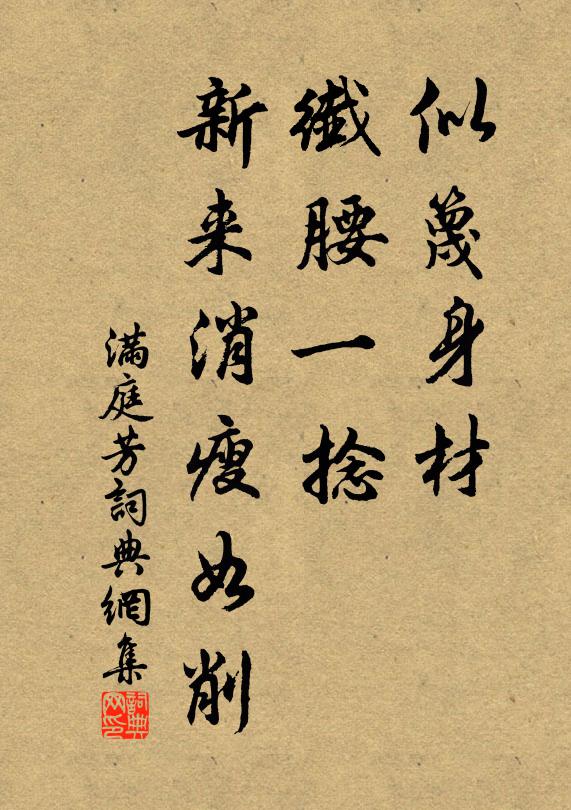 似蔑身材
纖腰一捻
新来消瘦如削
滿庭芳詞典網集
詞典网印